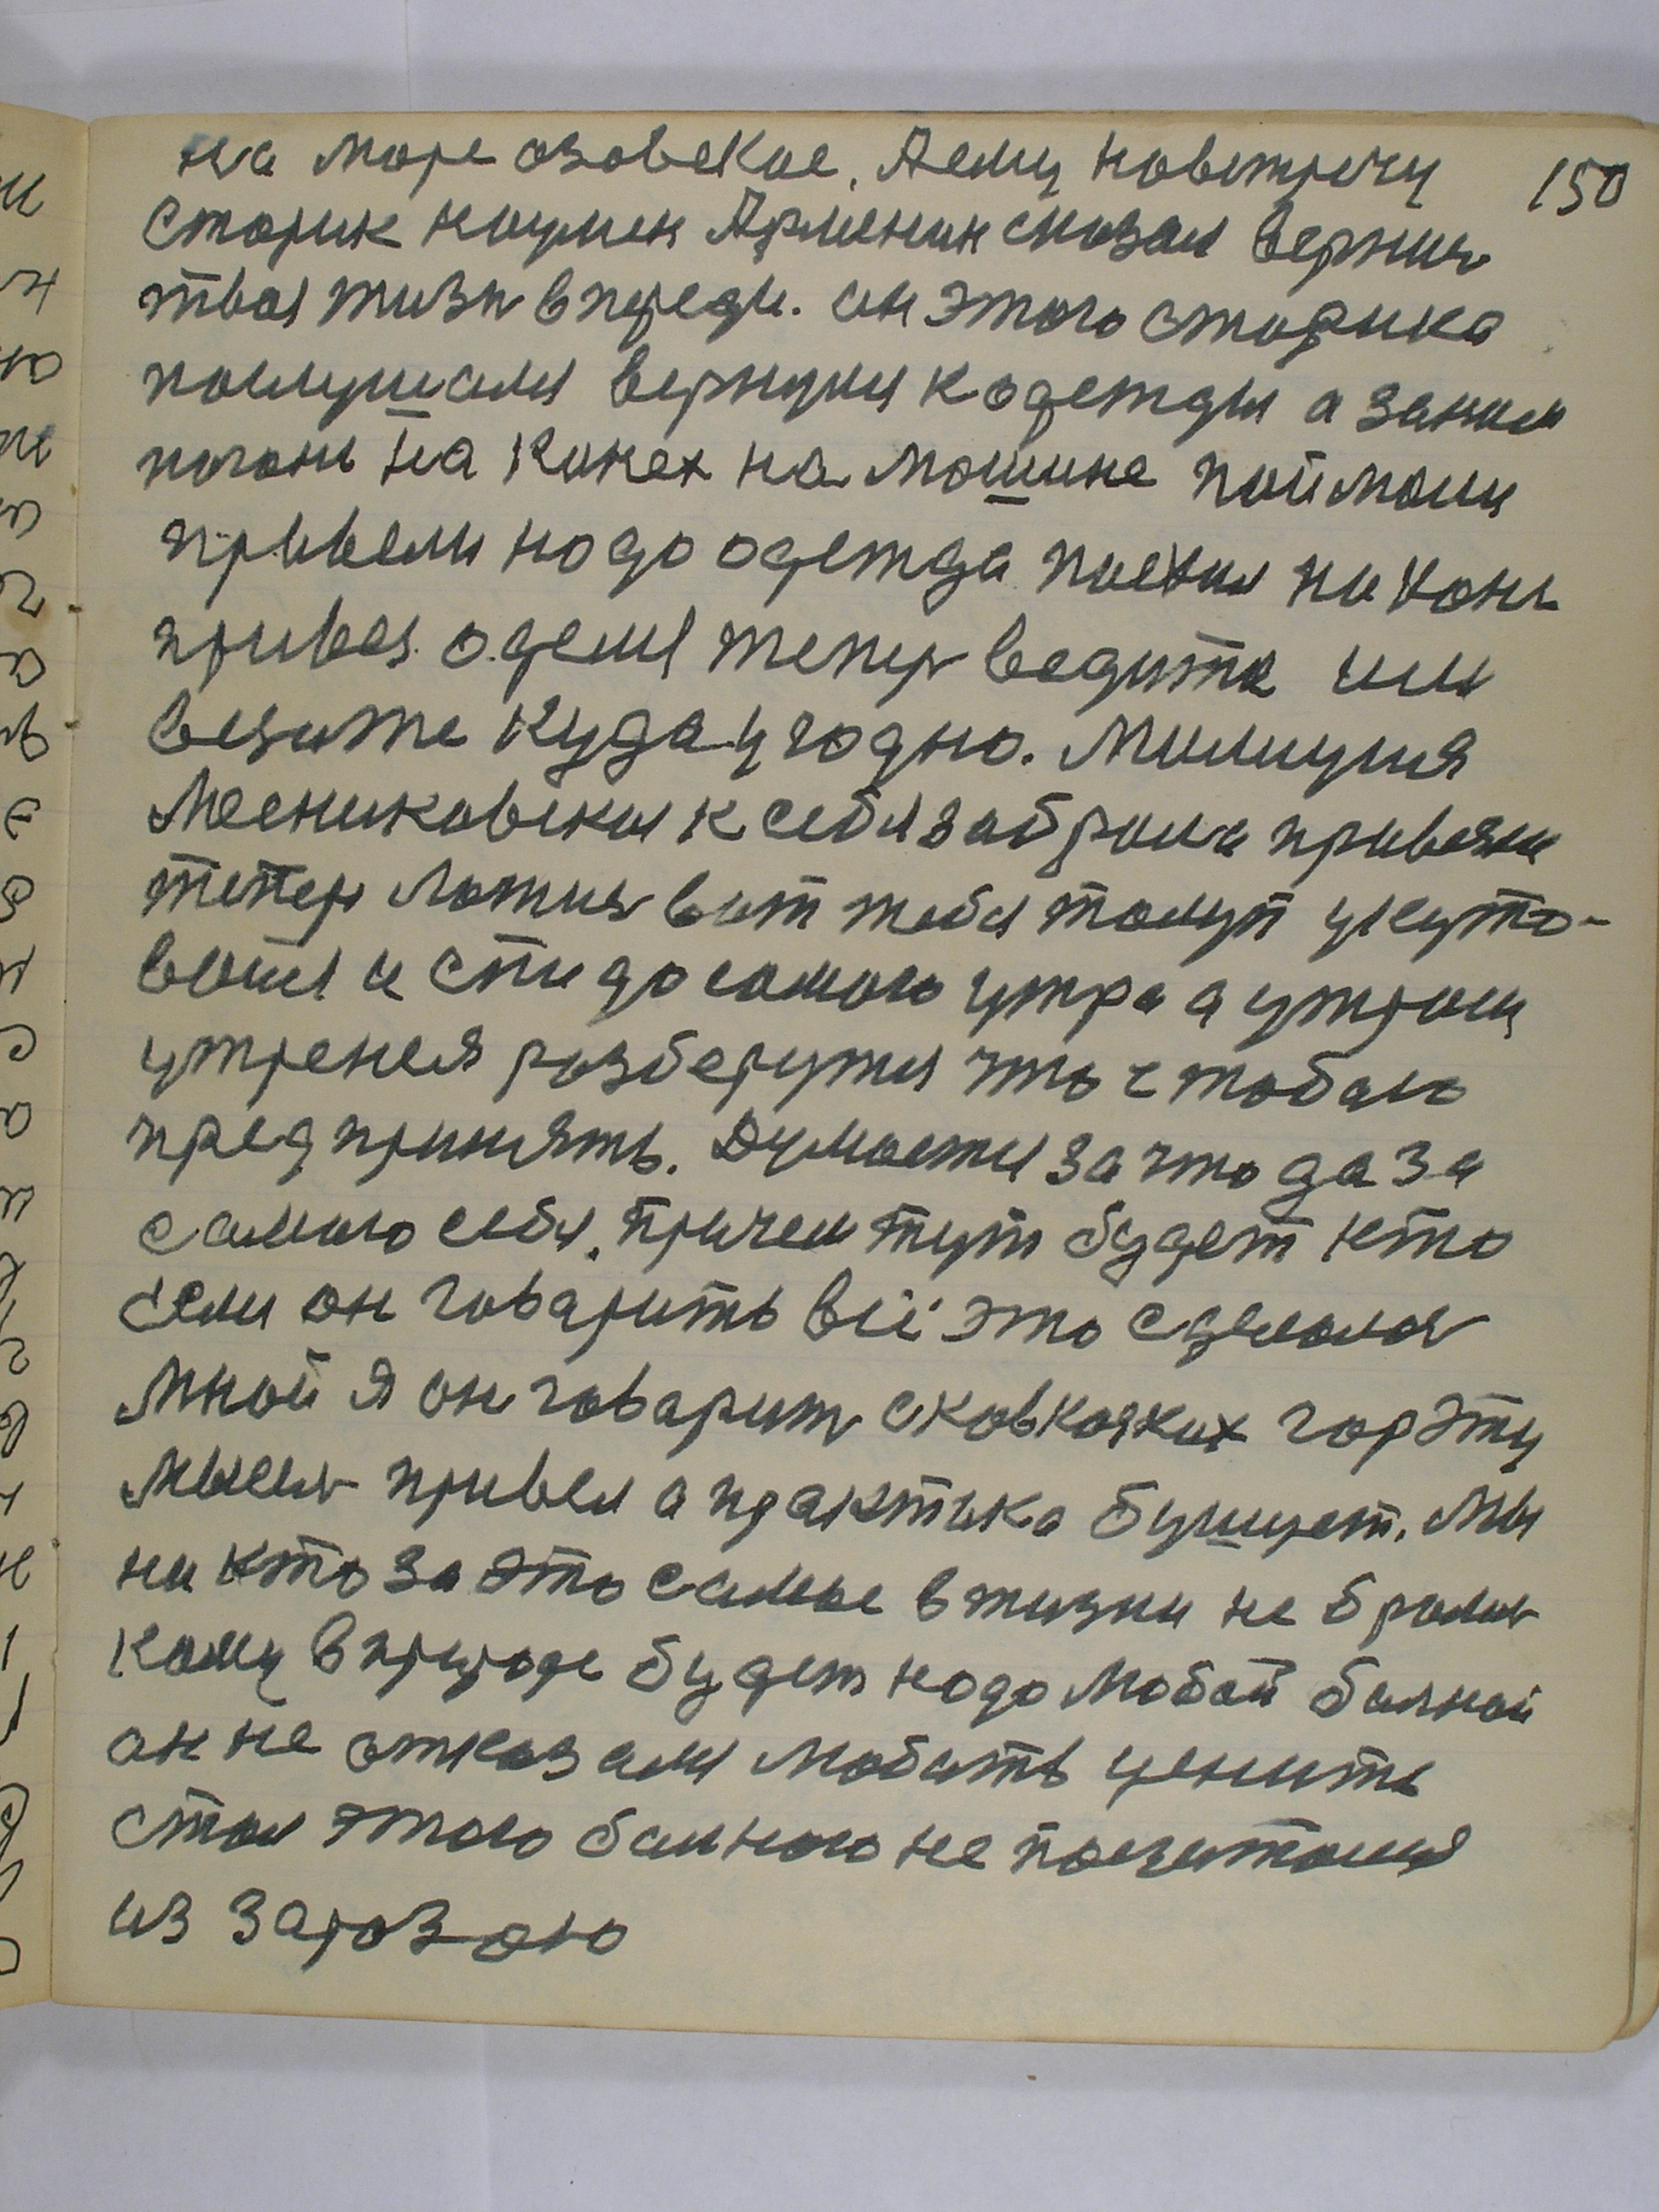 150
на море озовское. Аему новстречу
старик Армянин сказал вернис
твоя жизн впереди. он этого старика
послушался вернулся к одежды а заним
погонь на конех на машине поймали
привели надо одежда поехал на конь
привез оделся тепер ведите или
везите куда угодно. Милиция
Месниковская к себя забрала привезли
тепер ложис вот тебя толуп укуто-
вайся и спи до самого утра а утром
утреня розберутся что с тобою
предпринять. Думается за что да за
самого себя. Причем тут будет кто
если он говарить всё это сделалос
мной я он говарит с ковкозких гор эту
мысль привел а практика бушует. Мы
ни кто за это самое в жизни не бралис
кому в природе будет надо любой болной
он не отказался любить ценить
стал этого болного не посчитался
из заразою